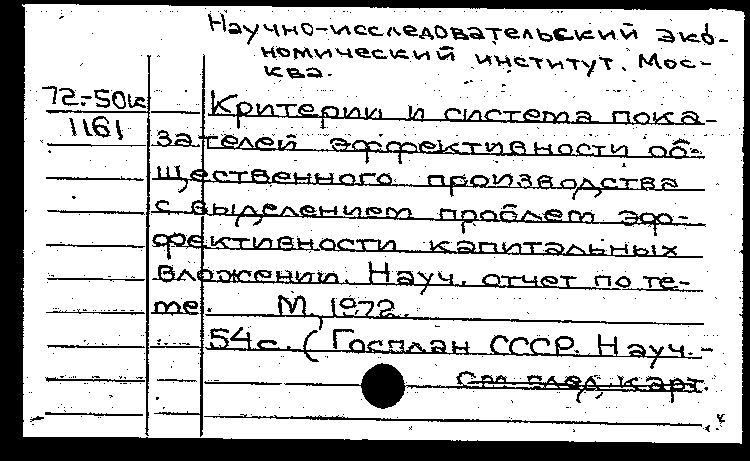 Научно-исследовательский эко-
номический институт. Мос-
ква.
72-50к
1161
Критерии и система пока-
зателей эффективности об-
щественного производства
с выделением проблем эф-
фективности капитальных
вложений. Науч. отчет по те-
ме. М, 1972.
54 с. (Госплан СССР. Науч.-
См. след. карт.